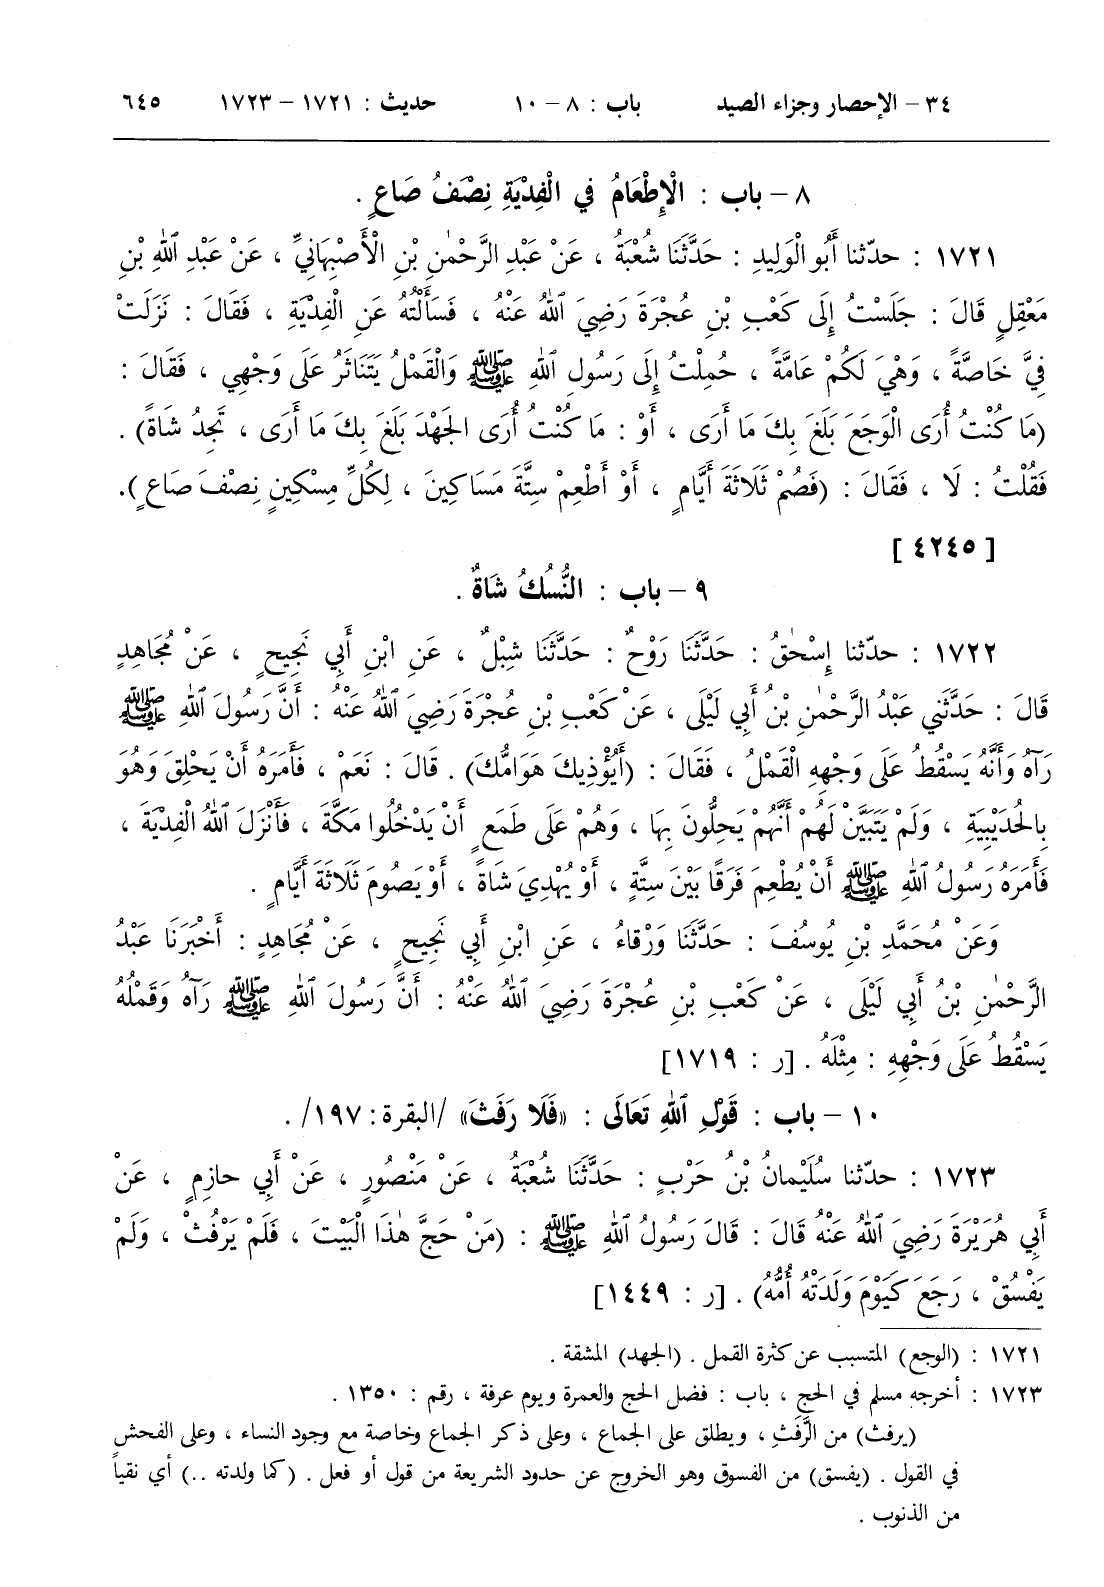 ٣٤ – الإحصار وجزاء الصيد باب : ٨ – ١٠ حديث : ١٧٢١ – ١٧٢٣ ٦٤٥
٨ – باب : الْإِطْعَامُ فِي الْفِدْيَةِ نِصْفُ صَاعٍ .
١٧٢١ : حدّثنا أَبُو الْوَلِيدِ : حَدَّثَنَا شُعْبَةُ ، عَنْ عَبْدِ الرَّحْمٰنِ بْنِ الْأَصْبِهَانِيِّ ، عَنْ عَبْدِ ٱللهِ بْنِ
مَعْقِلٍ قَالَ : جَلَسْتُ إِلَى كَعْبِ بْنِ عُجْرَةَ رَضِيَ ٱللهُ عَنْهُ ، فَسَأَلْتُهُ عَنِ الْفِدْيَةِ ، فَقَالَ : نَزَلَتْ
فِيَّ خَاصَّةً ، وَهْيَ لَكُمْ عَامَّةً ، حُمِلْتُ إِلَى رَسُولِ ٱللهِ ﷺ وَالْقَمْلُ يَتَنَاثَرُ عَلَى وَجْهِي ، فَقَالَ :
(مَا كُنْتُ أُرَى الْوَجَعَ بَلَغَ بِكَ مَا أَرَى ، أَوْ : مَا كُنْتُ أُرَى الجَهْدَ بَلَغَ بِكَ مَا أَرَى ، تَجِدُ شَاةً) .
فَقُلْتُ : لَا ، فَقَالَ : (فَصُمْ ثَلَاثَةَ أَيَّامٍ ، أَوْ أَطْعِمْ سِتَّةَ مَسَاكِينَ ، لِكُلِّ مِسْكِينٍ نِصْفَ صَاعٍ).
[٤٢٤٥]
٩ – باب : النُّسُكُ شَاةٌ .
١٧٢٢ : حدّثنا إِسْحٰقُ : حَدَّثَنَا رَوْحٌ : حَدَّثَنَا شِبْلٌ ، عَنِ ابْنِ أَبِي نَجِيحٍ ، عَنْ مُجَاهِدٍ
قَالَ : حَدَّثَنِي عَبْدُ الرَّحْمٰنِ بْنُ أَبِي لَيْلَى ، عَنْ كَعْبِ بْنِ عُجْرَةَ رَضِيَ ٱللهُ عَنْهُ : أَنَّ رَسُولَ ٱللهِ ﷺ
رَآهُ وَأَنَّهُ يَسْقُطُ عَلَى وَجْهِهِ الْقَمْلُ ، فَقَالَ : (أَيُؤْذِيكَ هَوَامُّكَ) . قَالَ : نَعَمْ ، فَأَمَرَهُ أَنْ يَحْلِقَ وَهُوَ
بِالحُدَيْبِيَةِ ، وَلَمْ يَتَبَيَّنْ لَهُمْ أَنَّهُمْ يَحِلُّونَ بِهَا ، وَهُمْ عَلَى طَمَعٍ أَنْ يَدْخُلُوا مَكَّةَ ، فَأَنْزَلَ ٱللهُ الْفِدْيَةَ ،
فَأَمَرَهُ رَسُولُ ٱللهِ ﷺ أَنْ يُطْعِمَ فَرَقًا بَيْنَ سِتَّةٍ ، أَوْ يُهْدِيَ شَاةً ، أَوْ يَصُومَ ثَلَاثَةَ أَيَّامٍ .
وَعَنْ مُحَمَّدِ بْنِ يُوسُفَ : حَدَّثَنَا وَرْقَاءُ ، عَنِ ابْنِ أَبِي نَجِيحٍ ، عَنْ مُجَاهِدٍ : أَخْبَرَنَا عَبْدُ
الرَّحْمٰنِ بْنُ أَبِي لَيْلَى ، عَنْ كَعْبِ بْنِ عُجْرَةَ رَضِيَ ٱللهُ عَنْهُ : أَنَّ رَسُولَ ٱللهِ ﷺ رَآهُ وَقَمْلُهُ
يَسْقُطُ عَلَى وَجْهِهِ : مِثْلَهُ . [ر : ١٧١٩]
١٠ – باب : قَوْلِ ٱللهِ تَعَالَى : «فَلَا رَفَثَ» /البقرة: ١٩٧/.
١٧٢٣ : حدّثنا سُلَيْمانُ بْنُ حَرْبٍ : حَدَّثَنَا شُعْبَةُ ، عَنْ مَنْصُورٍ ، عَنْ أَبِي حازِمٍ ، عَنْ
أَبِي هُرَيْرَةَ رَضِيَ ٱللهُ عَنْهُ قَالَ : قَالَ رَسُولُ ٱللهِ ﷺ : (مَنْ حَجَّ هٰذَا الْبَيْتَ ، فَلَمْ يَرْفُثْ ، وَلَمْ
يَفْسُقْ ، رَجَعَ كَيَوْمَ وَلَدَتْهُ أُمُّهُ) . [ر : ١٤٤٩]
١٧٢١ : (الوجع) المتسبب عن كثرة القمل . (الجهد) المشقة .
١٧٢٣ : أخرجه مسلم في الحج ، باب : فضل الحج والعمرة ويوم عرفة ، رقم : ١٣٥٠ .
(يرفث) من الرَّفَثِ ، ويطلق على الجماع ، وعلى ذكر الجماع وخاصة مع وجود النساء ، وعلى الفحش
في القول . (يفسق) من الفسوق وهو الخروج عن حدود الشريعة من قول أو فعل . (كما ولدته ..) أي نقياً
من الذنوب .